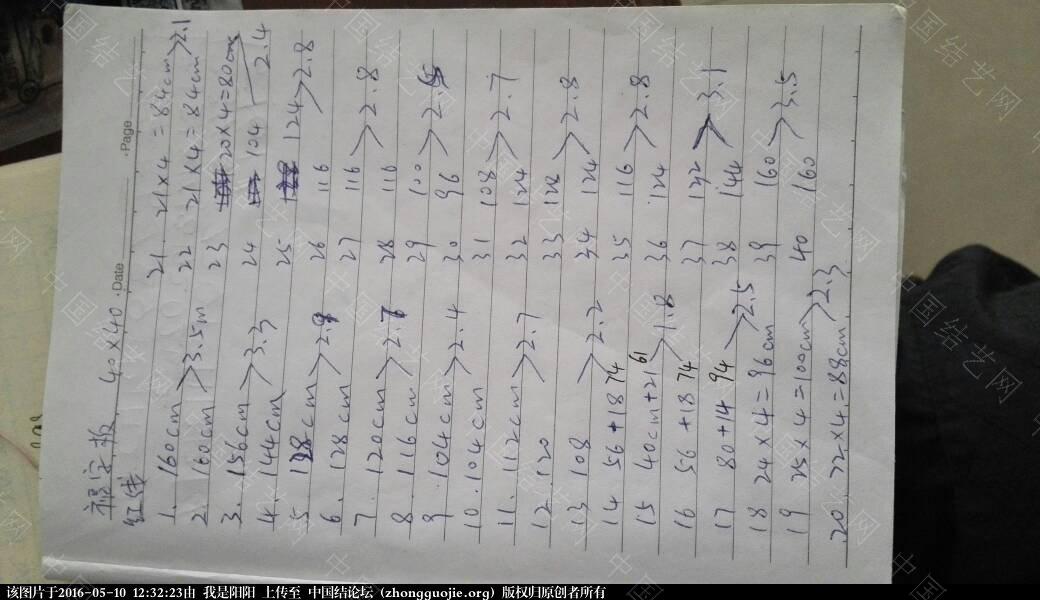 Date
Page
福字板 40×40
红线
1. 160cm
2. 160cm >3.5m
3. 156cm
4. 144cm >3.3
5 128cm
6. 128cm >2.9
7. 120cm
8. 116cm >2.7
9. 104cm
10. 104cm >2.4
11. 112cm
12. 120 >2.7
13 108
14 56+18 74 >2.2
15 40cm+21 61
16 56+18 74 >1.8
17 80+14 94
18 24×4=96cm >2.5
19 25×4=100cm
20 22×4=88cm >2.3
21. 21×4=84cm
22 21×4=84cm >2.1
23 20×4=80cm
24 104 2.4
25 124
26 116 >2.8
27 116
28 116 >2.8
29 100
30 96 >2.5
31 108
32 124 >2.7
33 124
34 124 >2.8
35 116
36 124 >2.8
37 132
38 144 >3.1
39 160
40 160 >3.5
中国结艺网
该图片于2016-05-10 12:32:23由 我是阳阳 上传至 中国结论坛 (zhongguojie.org) 版权归原创者所有